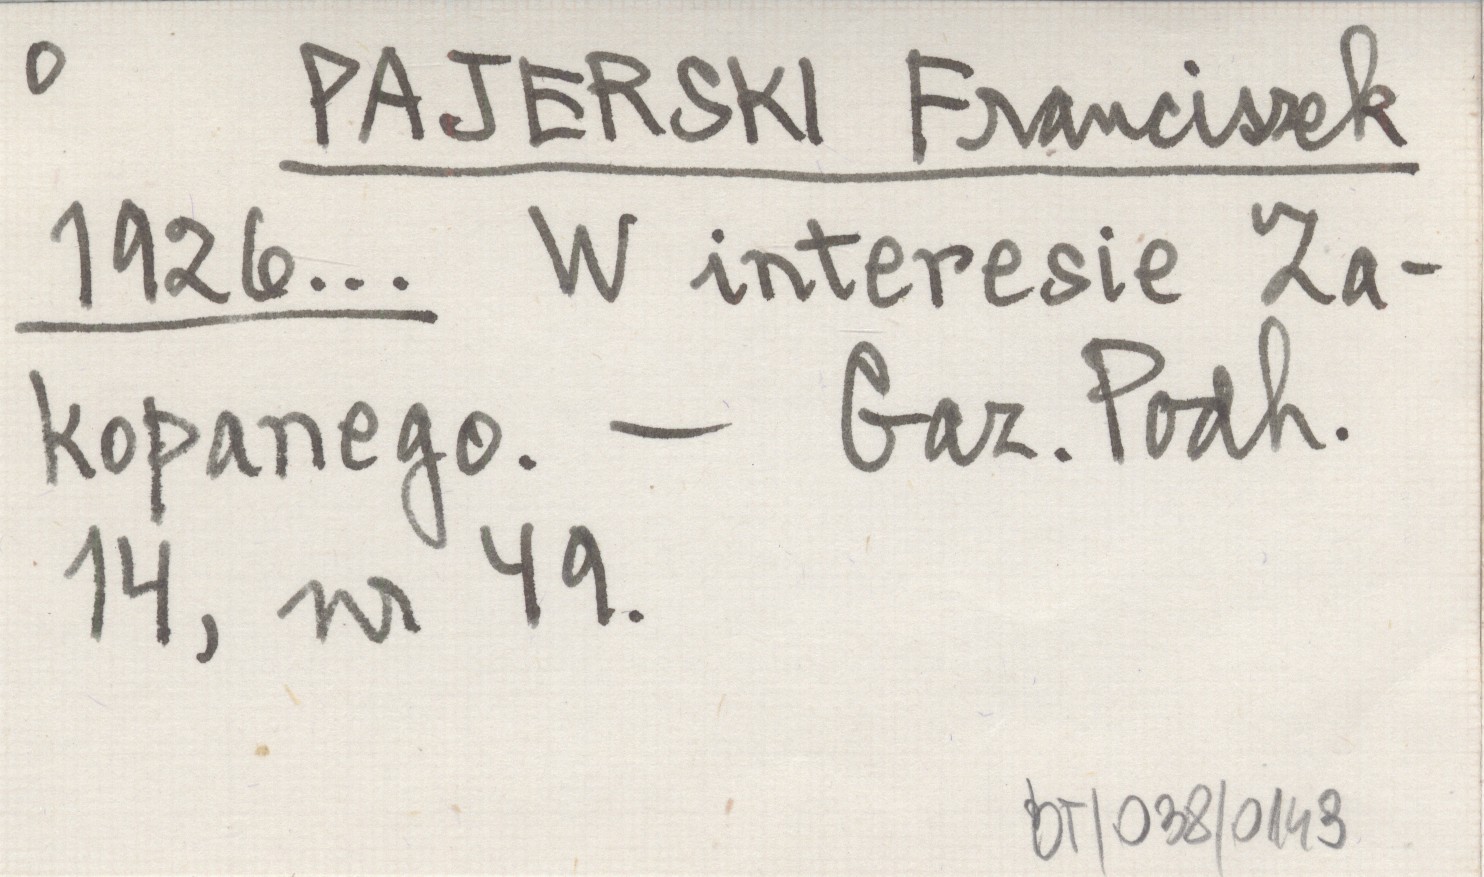 o PAJERSKI Franciszek
1926... W interesie Za-
kopanego. — Gaz. Podh.
14, nr 49.
bT/038/0143